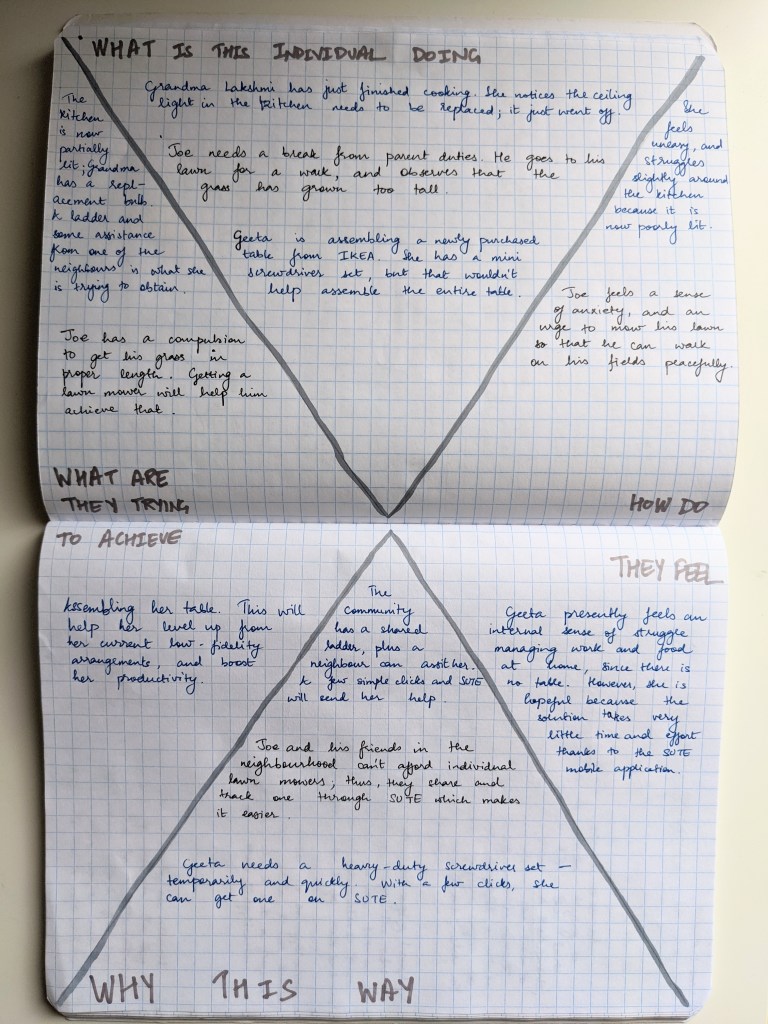 WHAT IS THIS INDIVIDUAL DOING
Grandma Lakshmi has just finished cooking. She notices the ceiling
light in the kitchen needs to be replaced; it just went off.
Joe needs a break from parent duties. He goes to his
lawn for a walk, and observes that the
grass has grown too tall.
Geeta is assembling a newly purchased
table from IKEA. She has a mini
screwdriver set, but that wouldn't
help assemble the entire table.
The
kitchen
is now
partially
lit; Grandma
has a repl-
acement bulb.
A ladder and
some assistance
from one of the
neighbours is what she
is trying to obtain.
Joe has a compulsion
to get his grass in
proper length. Getting a
lawn mower will help him
achieve that.
WHAT ARE
THEY TRYING
TO ACHIEVE
Assembling her table. This will
help her level up from
her current low-fidelity
arrangements, and boost
her productivity.
She
feels
uneasy, and
struggles
slightly around
the kitchen
because it is
now poorly lit.
Joe feels a sense
of anxiety, and an
urge to mow his lawn
so that he can walk
on his fields peacefully.
HOW DO
THEY FEEL
Geeta presently feels an
internal sense of struggle
managing work and food
at home, since there is
no table. However, she is
hopeful because the
solution takes very
little time and effort
thanks to the SUTE
mobile application.
The
community
has a shared
ladder, plus a
neighbour can assit her.
A few simple clicks and SUTE
will send her help.
Joe and his friends in the
neighbourhood can't afford individual
lawn mowers; thus, they share and
track one through SUTE which makes
it easier.
Geeta needs a heavy-duty screwdriver set —
temporarily and quickly. With a few clicks, she
can get one on SUTE.
WHY THIS WAY